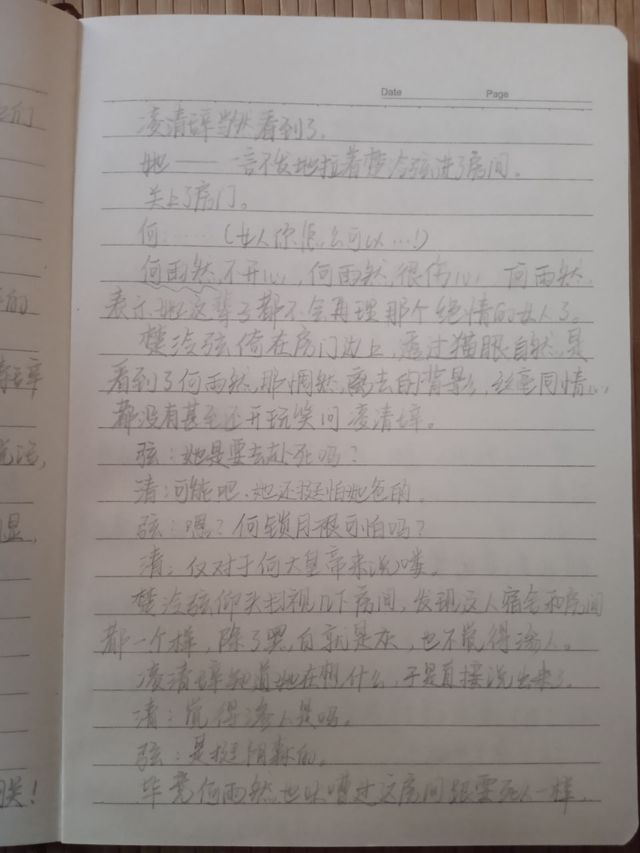 们
Date Page
凌清辞当然看到了。
她——一言不发地拉着楚泠弦进了房间。
关上了房门。
何……(女人你怎么可以…!)
何雨然,不开心,何雨然,很伤心,何雨然,
表示她这辈子都不会再理那个绝情的女人了。
楚泠弦倚在房门边上,透过猫眼自然是
看到了何雨然那惆然离去的背影,丝毫同情心
都没有甚至还开玩笑问凌清辞。
弦:她是要去赴死吗?
清:可能吧,她还挺怕她爸的。
弦:嗯?何锁月很可怕吗?
清:仅对于何大皇帝来说喽。
楚泠弦仰头扫视几下房间,发现这人宿舍和房间
都一个样,除了黑,白就是灰,也不觉得渗人。
凌清辞知道她在 什么,于是直接说出来了。
清:觉得渗人是吗。
弦:是挺阴森的。
毕竟何雨然也吐嘈过这房间跟要死人一样,
的
辞
显,
关!